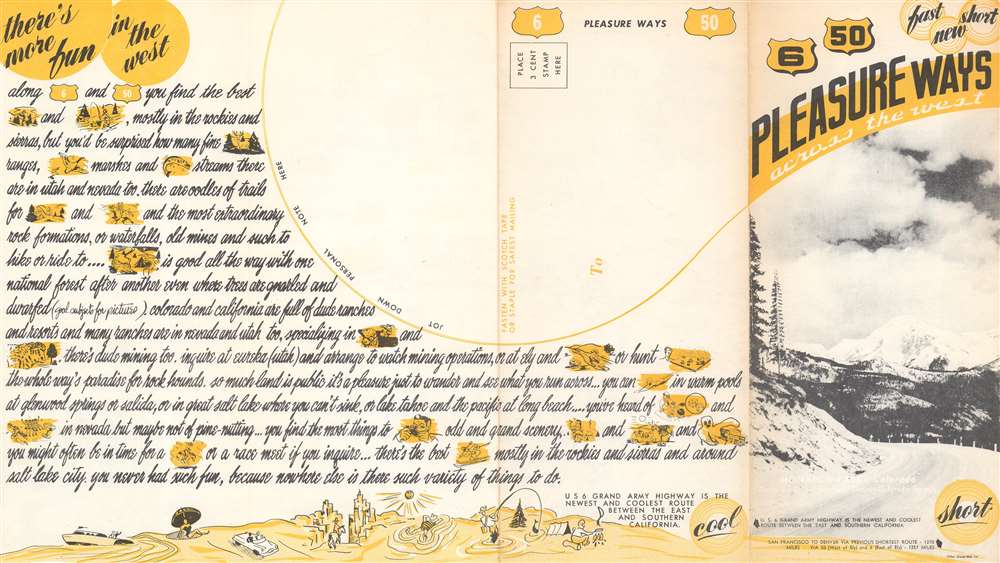 there's
more
fun
in
the
west
along 6 and 50 you find the best
and , mostly in the rockies and
sierras, but you'd be surprised how many fine
ranges, marshes and streams there
are in utah and nevada too. there are oodles of trails
for and and the most extraordinary
rock formations, or waterfalls, old mines and such to
hike or ride to.... is good all the way with one
national forest after another even where trees are gnarled and
dwarfed (good subjects for pictures). colorado and california are full of dude ranches
and resorts and many ranches are in nevada and utah too, specializing in and
. there's dude mining too. inquire at eureka (utah) and arrange to watch mining operations, or at ely and or hunt
the whole way's paradise for rock hounds. so much land is public it's a pleasure just to wander and see what you run across... you can in warm pools
at glenwood springs or salida, or in great salt lake where you can't sink, or lake tahoe and the pacific at long beach..... you've heard of and
in nevada but maybe not of pine-nutting... you find the most things to odd and grand scenery, and and
you might often be in time for a or a race meet if you inquire... there's the best mostly in the rockies and sierras and around
salt lake city. you never had such fun, because nowhere else is there such variety of things to do.
JOT DOWN PERSONAL NOTE HERE
U S 6 GRAND ARMY HIGHWAY IS THE
NEWEST AND COOLEST ROUTE
BETWEEN THE EAST
AND SOUTHERN
CALIFORNIA.
cool
6 PLEASURE WAYS 50
PLACE
3 CENT
STAMP
HERE
FASTEN WITH SCOTCH TAPE
OR STAPLE FOR SAFEST MAILING
To
fast
new
short
6 50
PLEASURE WAYS
across the west
short
U. S. 6 GRAND ARMY HIGHWAY IS THE NEWEST AND COOLEST
ROUTE BETWEEN THE EAST AND SOUTHERN CALIFORNIA
SAN FRANCISCO TO DENVER VIA PREVIOUS SHORTEST ROUTE - 1270
MILES VIA 50 (West of Ely) and 6 (East of Ely) - 1257 MILES